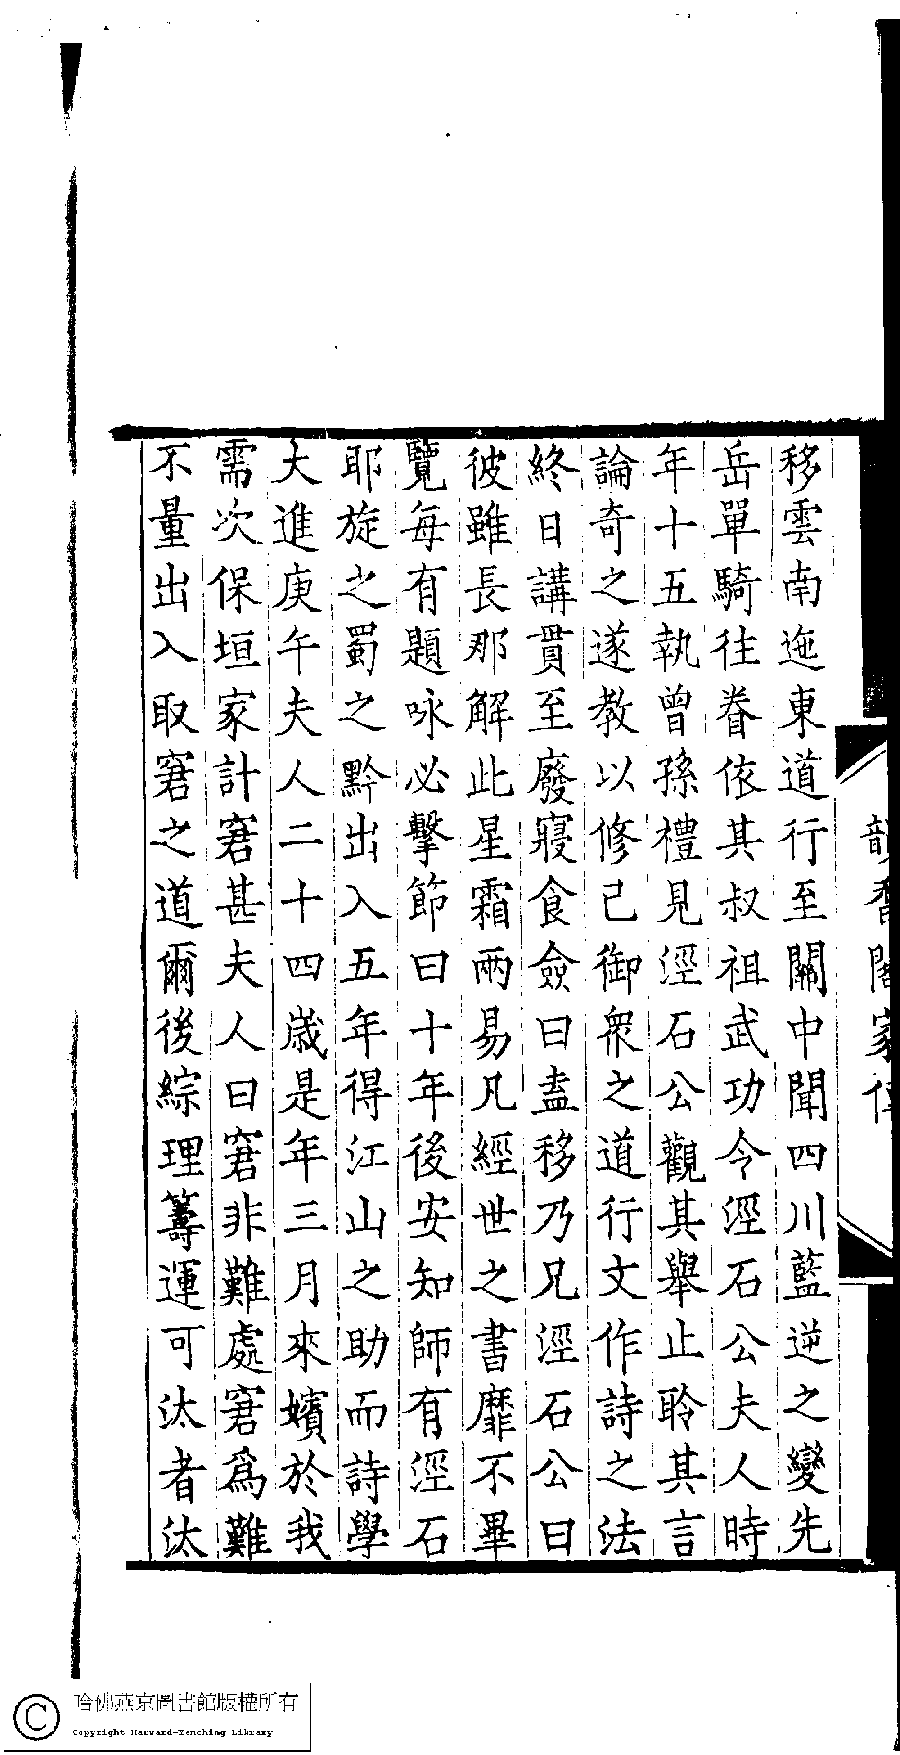 移雲南迤東道行至關中聞四川藍逆之變先
岳單騎往眷依其叔祖武功令涇石公夫人時
年十五執曾孫禮見涇石公觀其舉止聆其言
論奇之遂教以修己御衆之道行文作詩之法
終日講貫至廢寢食僉曰盍移乃兄涇石公曰
彼雖長那解此星霜兩易凡經世之書靡不畢
覽每有題咏必擊節曰十年後安知師有涇石
耶旋之蜀之黔出入五年得江山之助而詩學
大進庚午夫人二十四歲是年三月來嬪於我
需次保垣家計窘甚夫人曰窘非難處窘爲難
不量出入取窘之道爾後綜理籌運可汰者汰
家傳
哈佛燕京圖書館版權所有
Copyright Harvard-Yenching Library